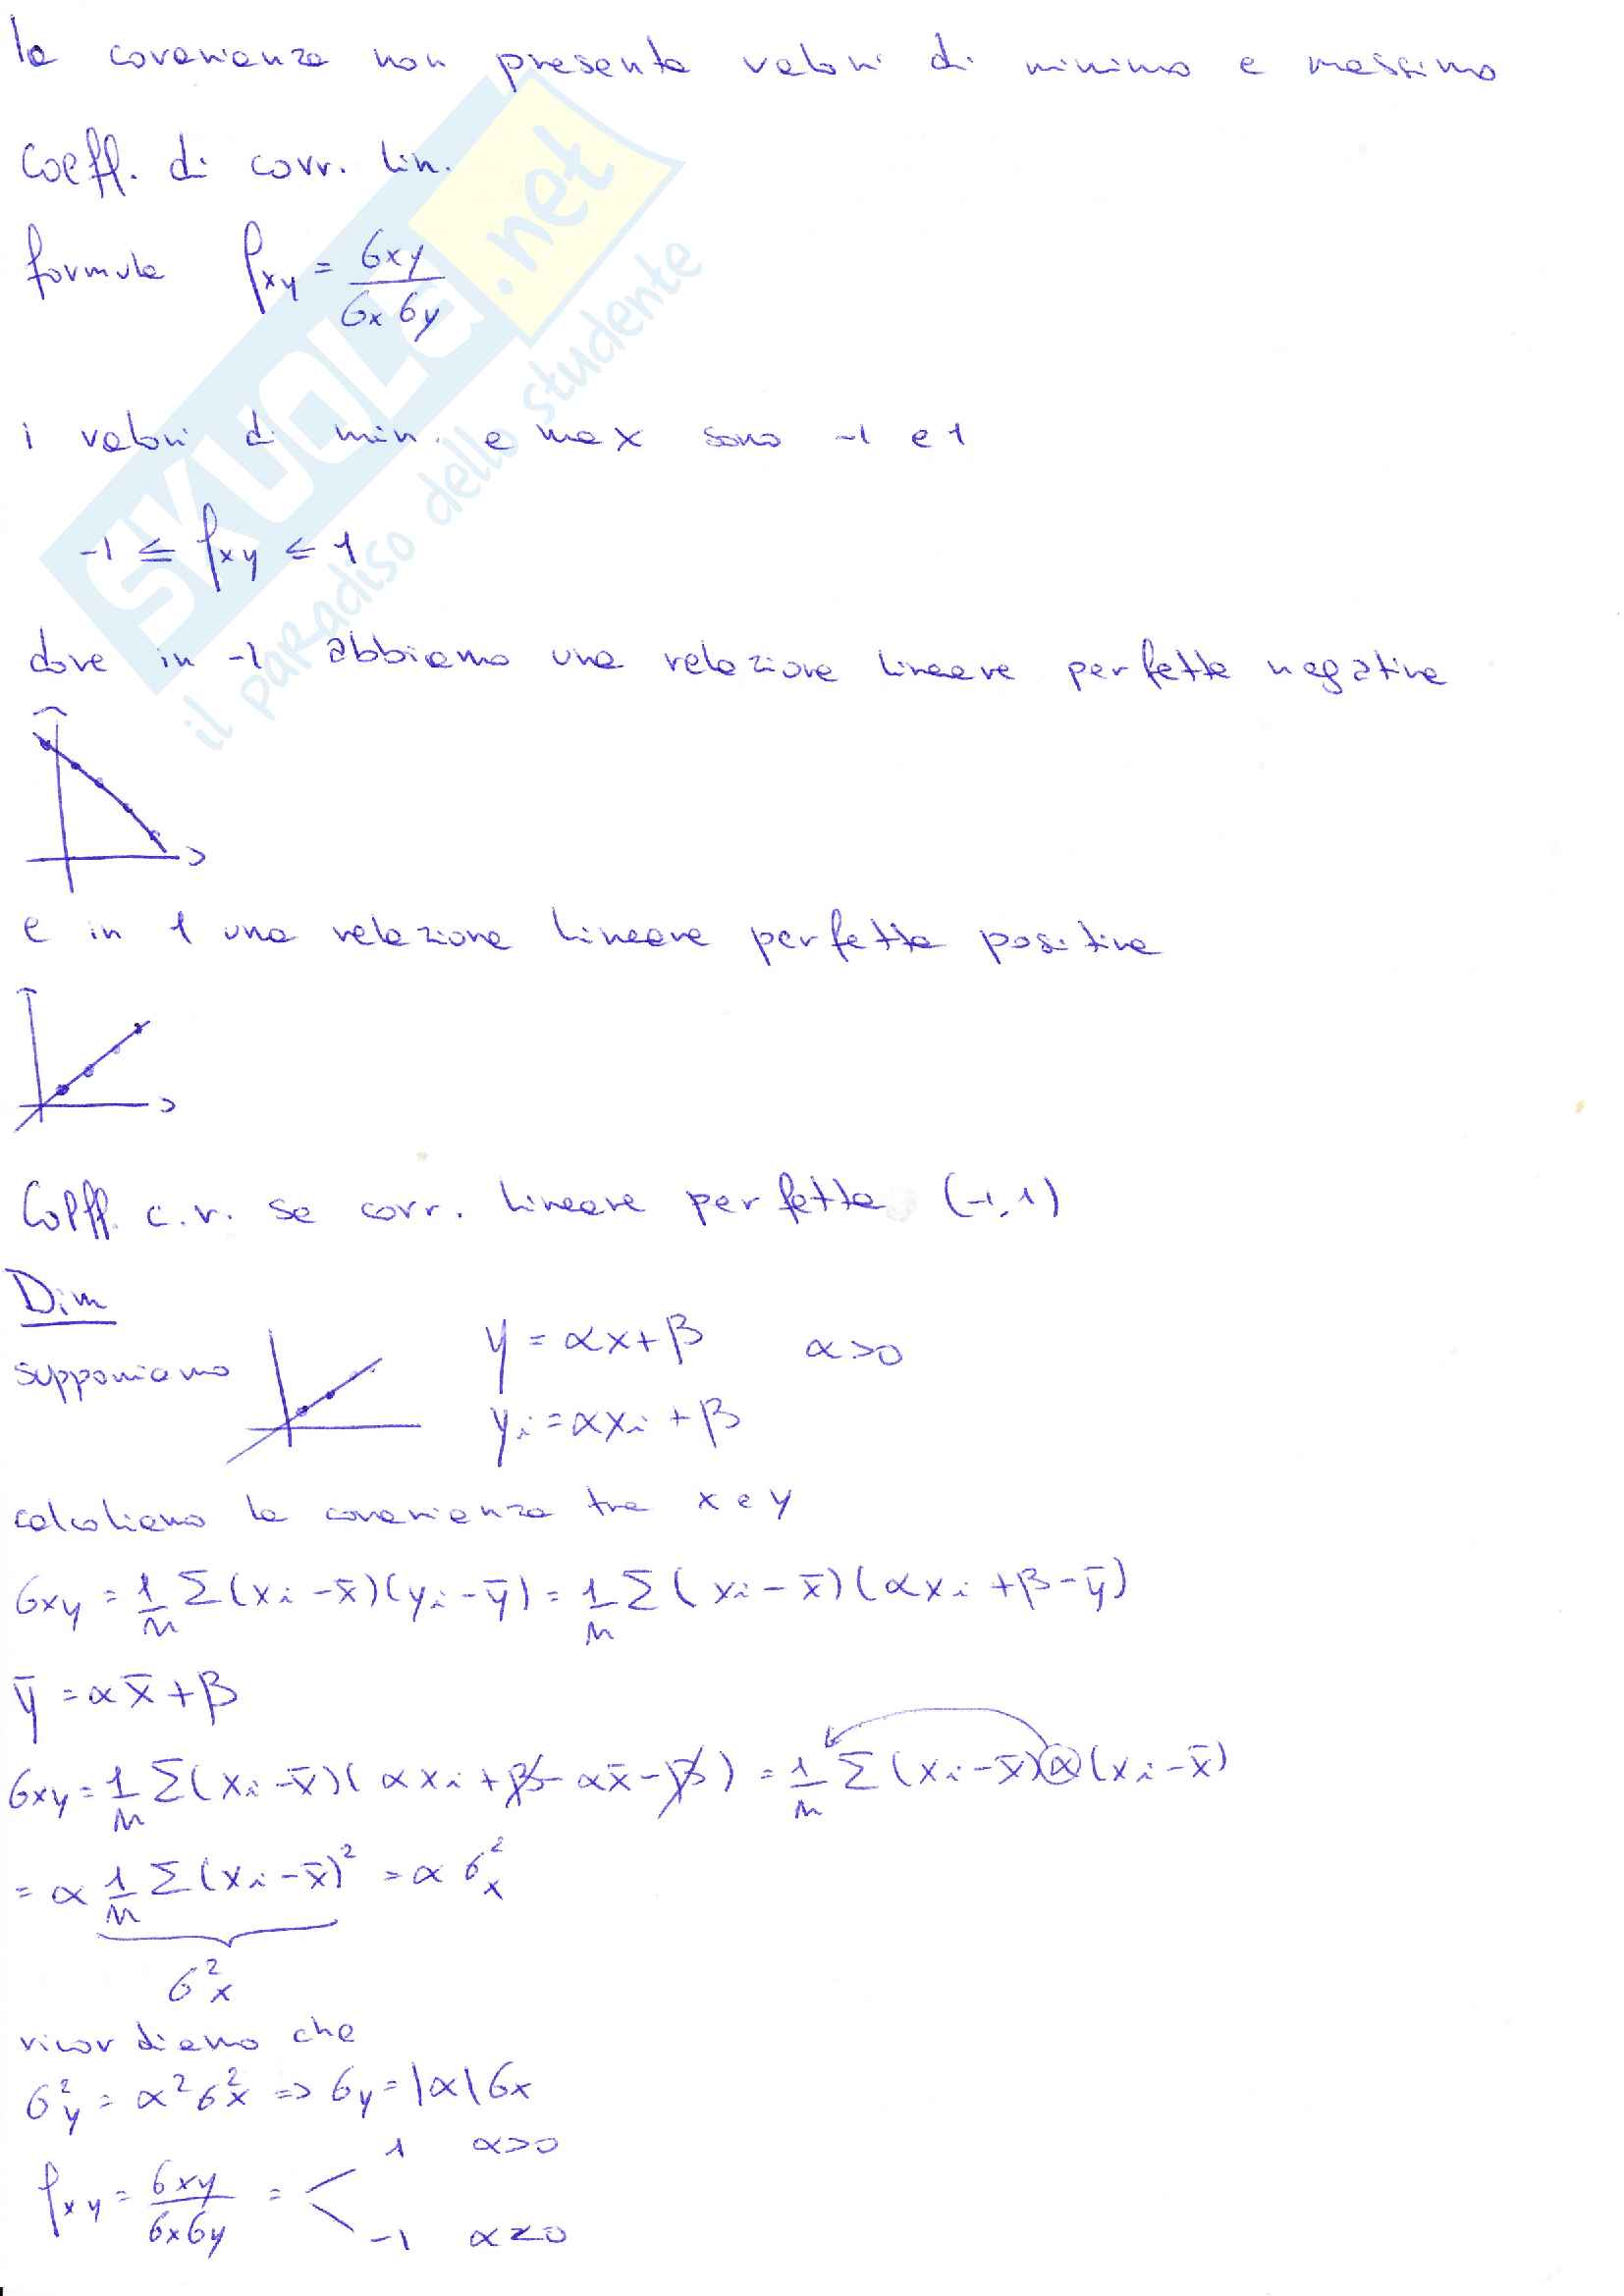 la covarianza non presenta valori di minimo e massimo
Coeff. di corr. lin.
formula ρxy = σxy / σx σy
i valori di min. e max sono -1 e 1
-1 ≤ ρxy ≤ 1
dove in -1 abbiamo una relazione lineare perfetta negativa
e in 1 una relazione lineare perfetta positiva
Coeff. c.r. se corr. lineare perfetta (-1,1)
Dim
supponiamo y = αx+β α>0
yi = αxi + β
calcoliamo la covarianza tra x e y
σxy = 1/n Σ(xi - x̄)(yi - ȳ) = 1/n Σ(xi - x̄)(αxi + β - ȳ)
ȳ = αx̄ + β
σxy = 1/n Σ(xi - x̄)(αxi + β - αx̄ - β) = 1/n Σ(xi - x̄)α(xi - x̄)
= α 1/n Σ(xi - x̄)² = α σ²x
σ²x
ricordiamo che
σ²y = α²σ²x => σy = |α|σx
ρxy = σxy / σxσy = < 1 α>0
-1 α<0
SKUOLa.net
il paradiso dello studente